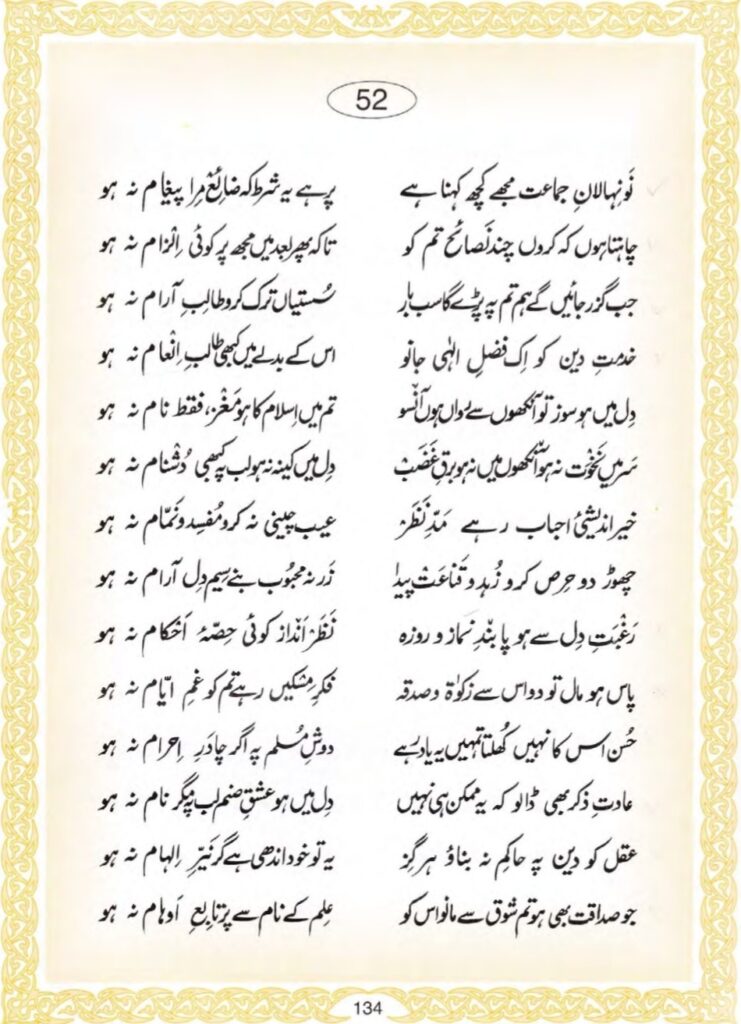 52
نَونِہالانِ جماعت مجھے کچھ کہنا ہے پر ہے یہ شرط کہ ضائع مِرا پیغام نہ ہو
چاہتا ہوں کہ کروں چند نَصائح تم کو تاکہ پھر بعد میں مجھ پر کوئی اِلْزام نہ ہو
جب گزر جائیں گے ہم تم پہ پڑے گا سب بار سُستیاں ترک کرو طالبِ آرام نہ ہو
خدمتِ دین کو اِک فضلِ الٰہی جانو اس کے بدلے میں کبھی طالبِ اِنْعام نہ ہو
دِل میں ہو سوز تو آنکھوں سے رواں ہوں آنسو تم میں اِسلام کا ہو مَغْز، فقط نام نہ ہو
سَر میں نَخْوَت نہ ہو آنکھوں میں نہ ہو برقِ غَضَبْ دِل میں کینہ نہ ہو لب پہ کبھی دُشْنام نہ ہو
خیر اندیشیٔ احباب رہے مَدِّنَظَرْ عیب چینی نہ کرو مُفْسِد و نَمّام نہ ہو
چھوڑ دو حِرص کرو زُہد و قَناعَتْ پیدا زَر نہ محبُوب بنے سِیم دِل آرام نہ ہو
رَغْبَتِ دِل سے ہو پابندِ نماز و روزہ نَظَرْ اَنْداز کوئی حِصّۂ اَحْکام نہ ہو
پاس ہو مال تو دو اس سے زکوٰۃ و صدقہ فکرِ مِسْکیں رہے تم کو غمِ ایّام نہ ہو
حُسن اس کا نہیں کُھلتا تمہیں یہ یاد رہے دوشِ مُسلم پہ اگر چادرِ اِحرام نہ ہو
عادتِ ذکر بھی ڈالو کہ یہ ممکن ہی نہیں دِل میں ہو عشقِ صنم لب پہ مگر نام نہ ہو
عقل کو دین پہ حاکِم نہ بناؤ ہرگِز یہ تو خود اندھی ہے گر نَیّرِ اِلہام نہ ہو
جو صداقت بھی ہو تم شوق سے مانو اس کو عِلم کے نام سے پر تابعِ اَوہام نہ ہو
134